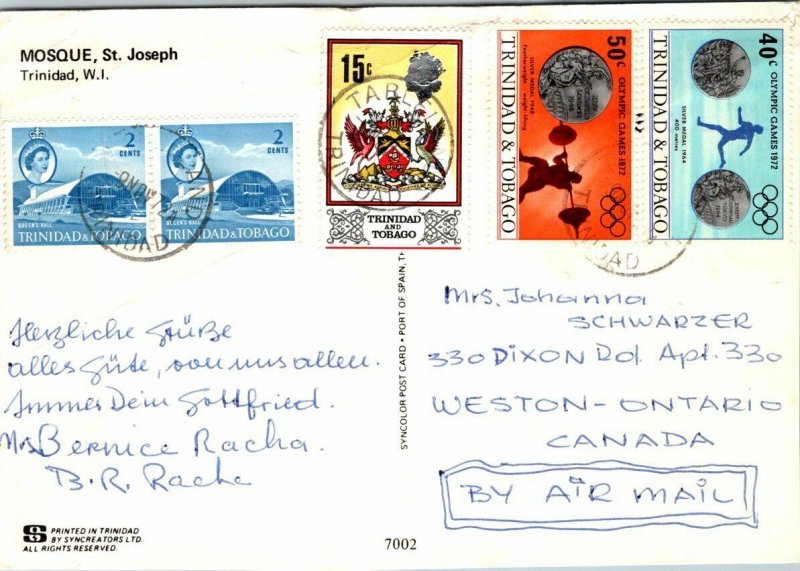 MOSQUE, St. Joseph
Trinidad, W.I.
2
CENTS
QUEEN'S HALL
TRINIDAD & TOBAGO
2
CENTS
QUEEN'S HALL
TRINIDAD & TOBAGO
TRINIDAD
15c
TABLE
TRINIDAD
TRINIDAD
AND
TOBAGO
TRINIDAD & TOBAGO
SILVER MEDAL 1948
Featherweight - weight lifting
50c OLYMPIC GAMES 1972
TRINIDAD & TOBAGO
SILVER MEDAL 1964
400 metres
40c OLYMPIC GAMES 1972
Herzliche Grüße
alles Güte, von uns allen.
Immer Dein Gottfried.
Mrs Bernice Racha.
B.R. Racha
SYNCOLOR POST CARD • PORT OF SPAIN, T
Mrs. Johanna
SCHWARZER
330 DIXON Rd. Apt. 330
WESTON - ONTARIO
CANADA
BY AIR MAIL
PRINTED IN TRINIDAD
BY SYNCREATORS LTD.
ALL RIGHTS RESERVED
7002